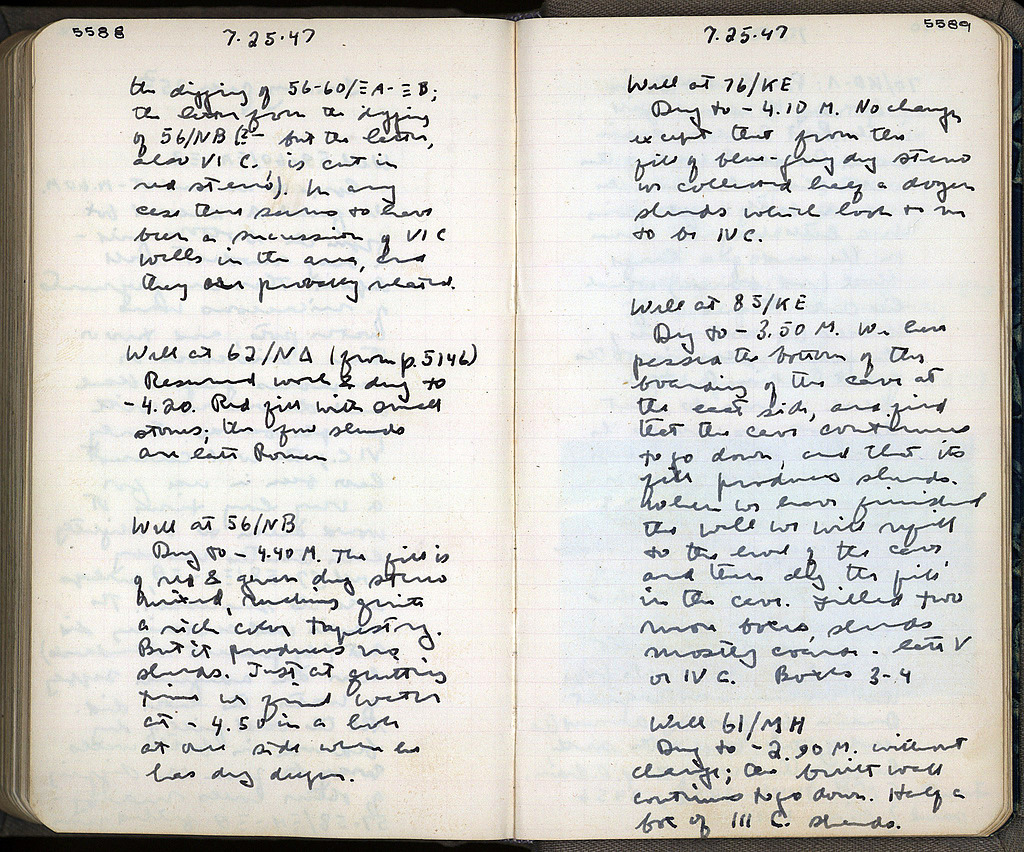 5588
7.25.47
the digging of 56-60/ΞA-ΞB;
the latter from the digging
of 56/NB (Ξ- but the latter,
also VI C. is cut in
red stereo). In any
case there seems to have
been a succession of VI C
wells in the area, and
they are probably related.
Well at 62/NΔ (from p. 5146)
Resumed work & dug to
- 4.20. Red fill with small
stones; the few sherds
are late Roman
Well at 56/NB
Dug to - 4.40 M. The fill is
of red & green dug stereo
mixed, making quite
a rich color tapestry.
But it produces no
sherds. Just at quitting
time we found water
at - 4.50 in a hole
at one side where he
has dug deeper.
5589
7.25.47
Well at 76/KE
Dug to - 4.10 M. No change
except that from the
fill of blue-gray dug stereo
we collected half a dozen
sherds which look to me
to be IV C.
Well at 85/KE
Dug to - 3.50 M. We have
passed the bottom of the
boarding of the cave at
the east side, and find
that the cave continues
to go down, and that its
fill produces sherds.
When we have finished
the well we will refill
to the level of the cave
and then dig the fill
in the cave. Filled two
more boxes, sherds
mostly coarse - late V
or IV C. Boxes 3-4
Well 61/MH
Dug to - 2.90 M. without
change; the built wall
continues to go down. Half a
box of III C. sherds.